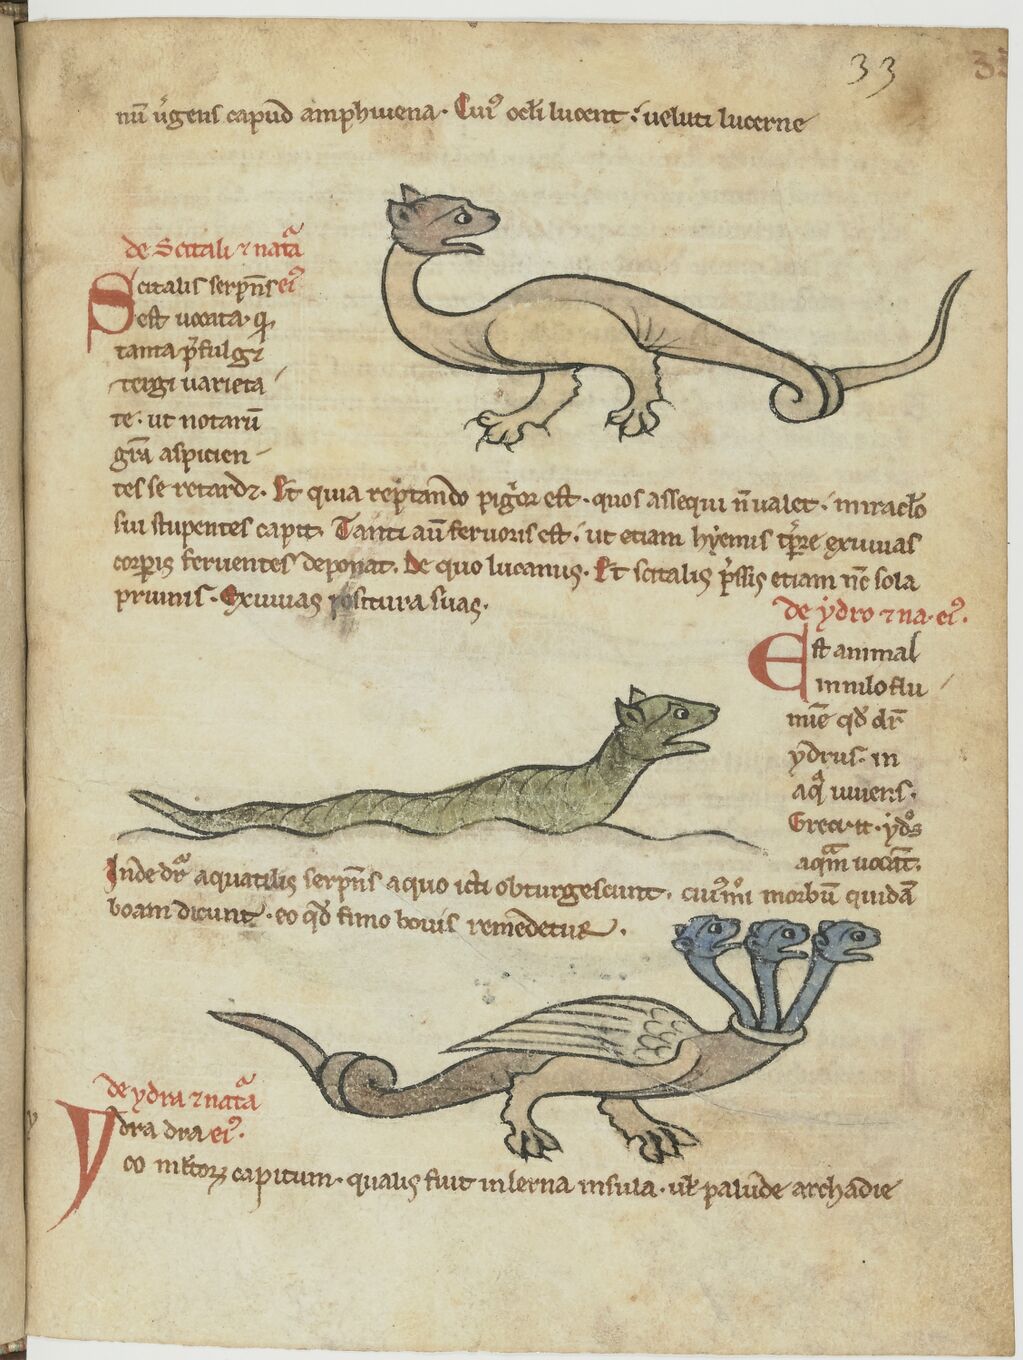 33
nū ũgens capud amphiuena. Cui' ocl̄i lucent: ueluti lucerne
de Scitali ⁊ natᵃ
ei'.
Scitalis serp̄ns
est uocata. q
tanta p̄fulg&
tergi uarieta
te. ut notarū
gr̄a aspicien
tes se retard&. Et quia reptando pigͥor est. quos assequi n̄ ualet. miraclo
sui stupentes capit. Tanti aū feruoris est. ut etiam hyemis tp̄re exuuias
corp̄is feruentes deponat. De quo lucanus. Et scitalis sp̄sis etiam nc̄ sola
pruinis. Exuuias positura suas.
de ydro ⁊ na. ei'.
Est animal
in nilo flu
mīe qd̄ dr̄
ydrus. in
aqᵃ uiuens.
Greci
aquam uocāt.
Inde dr̄ aquatilis serp̄ns a quo icti obturgescunt. cui' morbū quidā
boam dicunt. eo qd̄ fimo bouis remedetur.
de ydra ⁊ natᵃ
ei'.
Ydra dra
co capitum. qualis fuit in lerna insula. ul̄ palude archadie